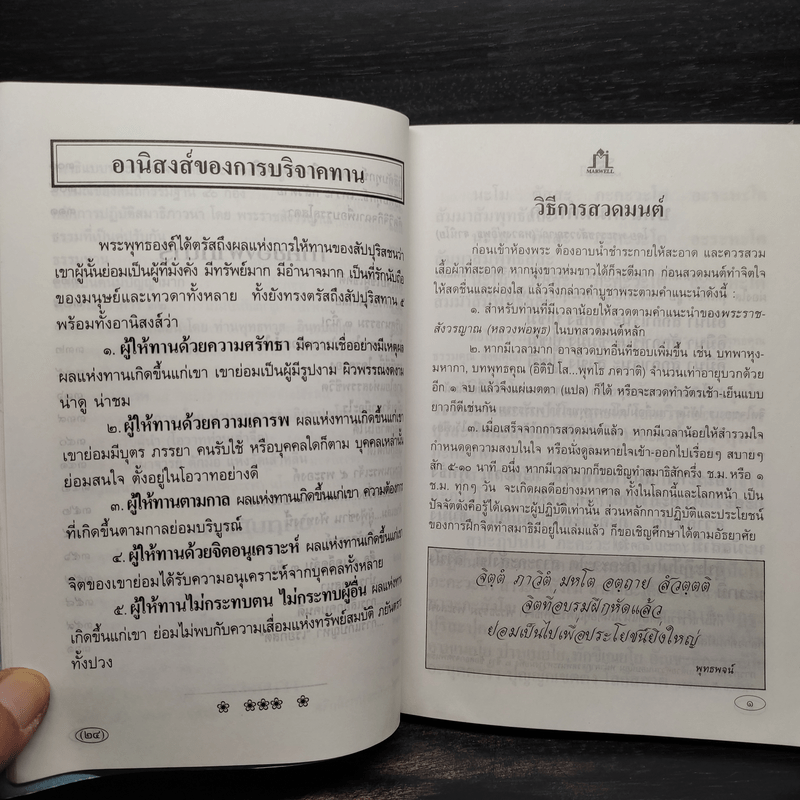 อานิสงส์ของการบริจาคทาน
พระพุทธองค์ได้ตรัสถึงผลแห่งการให้ทานของสัปปุริสชนว่า
เขาผู้นั้นย่อมเป็นผู้ที่มั่งคั่ง มีทรัพย์มาก มีอำนาจมาก เป็นที่รักนับถือ
ของมนุษย์และเทวดาทั้งหลาย ทั้งยังทรงตรัสถึงสัปปุริสทาน ๕
พร้อมทั้งอานิสงส์ว่า
๑. ผู้ให้ทานด้วยความศรัทธา มีความเชื่ออย่างมีเหตุผล
ผลแห่งทานเกิดขึ้นแก่เขา เขาย่อมเป็นผู้มีรูปงาม ผิวพรรณงดงาม
น่าดู น่าชม
๒. ผู้ให้ทานด้วยความเคารพ ผลแห่งทานเกิดขึ้นแก่เขา
เขาย่อมมีบุตร ภรรยา คนรับใช้ หรือบุคคลใดก็ตาม บุคคลเหล่านั้น
ย่อมสนใจ ตั้งอยู่ในโอวาทอย่างดี
๓. ผู้ให้ทานตามกาล ผลแห่งทานเกิดขึ้นแก่เขา ความต้องการ
ที่เกิดขึ้นตามกาลย่อมบริบูรณ์
๔. ผู้ให้ทานด้วยจิตอนุเคราะห์ ผลแห่งทานเกิดขึ้นแก่เขา
จิตของเขาย่อมได้รับความอนุเคราะห์จากบุคคลทั้งหลาย
๕. ผู้ให้ทานไม่กระทบตน ไม่กระทบผู้อื่น ผลแห่งทาน
เกิดขึ้นแก่เขา ย่อมไม่พบกับความเสื่อมแห่งทรัพย์สมบัติ ภยันตราย
ทั้งปวง
(๒๔)
MARWELL
วิธีการสวดมนต์
ก่อนเข้าห้องพระ ต้องอาบน้ำชำระกายให้สะอาด และควรสวม
เสื้อผ้าที่สะอาด หากนุ่งขาวห่มขาวได้ก็จะดีมาก ก่อนสวดมนต์ทำจิตใจ
ให้สดชื่นและผ่องใส แล้วจึงกล่าวคำบูชาพระตามคำแนะนำดังนี้ :
๑. สำหรับท่านที่มีเวลาน้อยให้สวดตามคำแนะนำของพระราช-
สังวรญาณ (หลวงพ่อพุธ) ในบทสวดมนต์หลัก
๒. หากมีเวลามาก อาจสวดบทอื่นที่ชอบเพิ่มขึ้น เช่น บทพาหุง-
มหากา, บทพุทธคุณ (อิติปิ โส...พุทโธ ภควาติ) จำนวนเท่าอายุบวกด้วย
อีก ๑ จบ แล้วจึงแผ่เมตตา (แปล) ก็ได้ หรือจะสวดทำวัตรเช้า-เย็นแบบ
ยาวก็ดีเช่นกัน
๓. เมื่อเสร็จจากการสวดมนต์แล้ว หากมีเวลาน้อยให้สำรวมใจ
กำหนดดูความสงบในใจ หรือนั่งดูลมหายใจเข้า-ออกไปเรื่อยๆ สบายๆ
สัก ๕-๑๐ นาที อนึ่ง หากมีเวลามากก็ขอเชิญทำสมาธิสักครึ่ง ช.ม. หรือ ๑
ช.ม. ทุกๆ วัน จะเกิดผลดีอย่างมหาศาล ทั้งในโลกนี้และโลกหน้า เป็น
ปัจจัตตังคือรู้ได้เฉพาะผู้ปฏิบัติเท่านั้น ส่วนหลักการปฏิบัติและประโยชน์
ของการฝึกจิตทำสมาธิมีอยู่ในเล่มแล้ว ก็ขอเชิญศึกษาได้ตามอัธยาศัย
จิตฺตํ ภาวิตํ มหโต อตฺถาย สํวตฺตติ
จิตที่อบรมฝึกหัดแล้ว
ย่อมเป็นไปเพื่อประโยชน์ยิ่งใหญ่
พุทธพจน์
๑